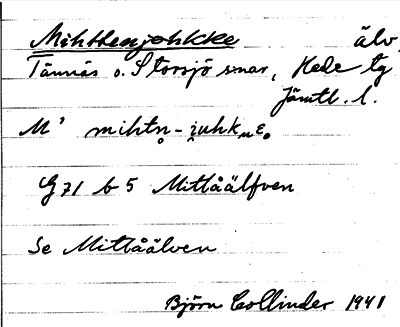 Mihttenjohkke älv,
Tännäs o. Storsjö snar, Hede tg
Jämtl. l.
M'
G 71 b 5 Mittåälfven
Se Mittåälven
Björn Collinder 1941